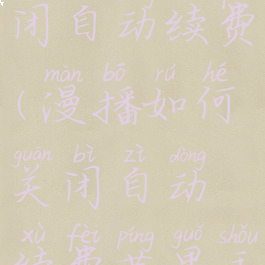 闭自动续费
màn bō rú hé
(漫播如何
guān bì zì dòng
关闭自动
xù fèi píng guǒ shǒu
续费苹果手